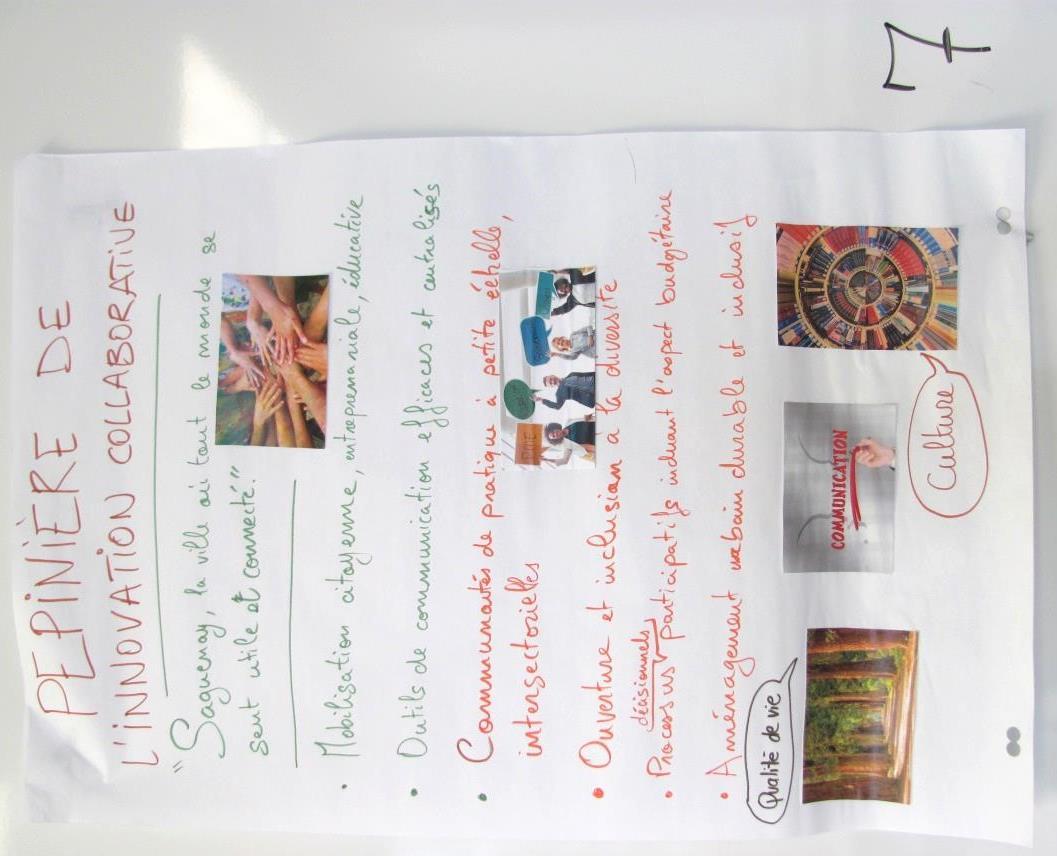 7
PEPINIÈRE DE
L'INNOVATION COLLABORATIVE
"Saguenay, la ville où tout le monde se
sent utile et connecté."
• Mobilisation citoyenne, entreprenariale, éducative
• Outils de communication efficaces et centralisés
• Communautés de pratique à petite échelle,
intersectorielles
• Ouverture et inclusion à la diversité
décisionnels
• Processus participatifs incluant l'aspect budgétaire
• Aménagement urbain durable et inclusif
Qualité de vie
COMMUNICATION
Culture